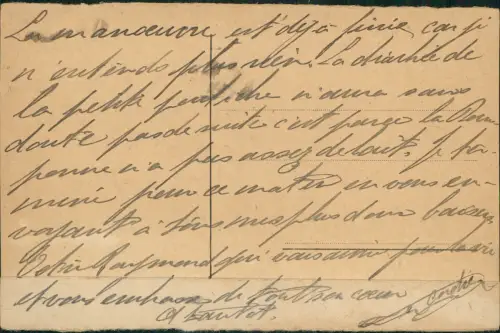 La manœuvre est déjà finie, car j
n'entends plus rien. La diarhée de
la petite n'aura sans
doute pas de suite c'est parce la Bonne
n'a pas assez de lait. Je ter-
mine pour ce matin en vous en-
voyant à tous mes plus doux baisers
Votre Raymond qui vous aime pour la vie
et vous embrasse de tout son cœur
A bientôt.